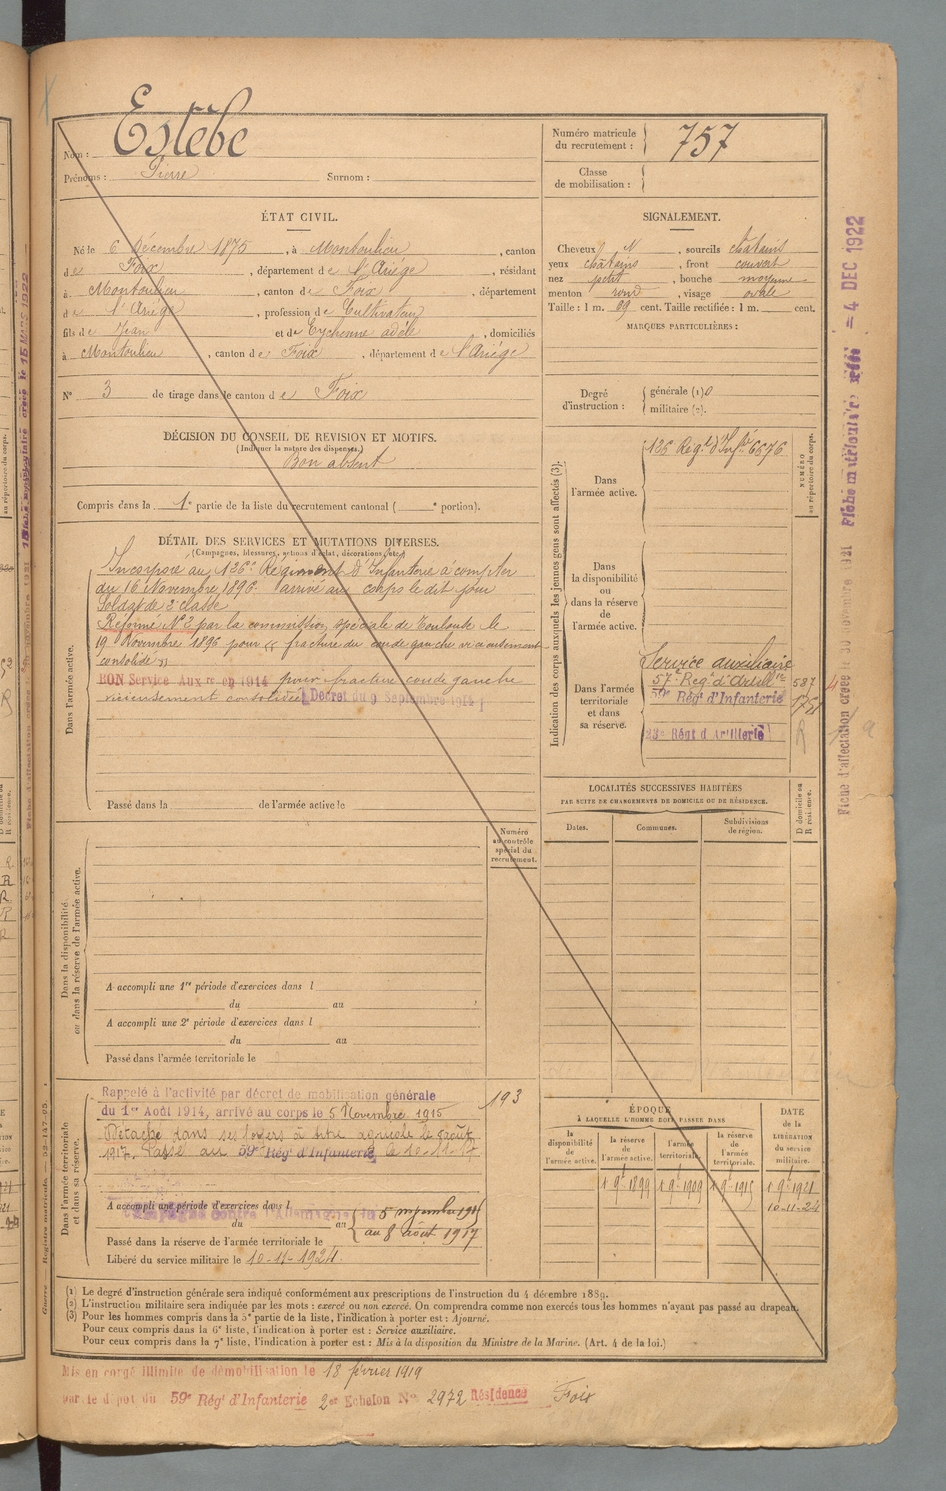 Estèbe
Nom :
Prénoms : Pierre Surnom :
Numéro matricule du recrutement : 757
Classe de mobilisation :
ÉTAT CIVIL.
Né le 6 Décembre 1875, à Montoulieu, canton
de Foix, département de l'Ariége, résidant
à Montoulieu, canton de Foix, département
de l'Ariége, profession de Cultivateur
fils de Jean et de Eychenne adèle, domiciliés
à Montoulieu, canton de Foix, département de l'Ariége
N° 3 de tirage dans le canton de Foix
SIGNALEMENT.
Cheveux N, sourcils châtains
yeux châtains, front couvert
nez petit, bouche moyenne
menton rond, visage ovale
Taille : 1 m. 69 cent. Taille rectifiée : 1 m. cent.
MARQUES PARTICULIÈRES :
Degré d'instruction : générale (1) 0
militaire (2).
DÉCISION DU CONSEIL DE REVISION ET MOTIFS.
(Indiquer la nature des dispenses.)
Bon absent
Compris dans la 1e partie de la liste du recrutement cantonal ( e portion).
DÉTAIL DES SERVICES ET MUTATIONS DIVERSES.
(Campagnes, blessures, actions d'éclat, décorations, etc.)
Dans l'armée active.
Incorporé au 126e Régiment d'Infanterie à compter
du 16 Novembre 1896. arrivé au corps le dit jour
Soldat de 2e classe
Réformé N° 2 par la commission spéciale de Toulouse le
19 Novembre 1896 pour « fracture du coude gauche vicieusement
consolidé »
BON Service Auxre en 1914 pour fracture coude gauche
vicieusement consolidée (Décret du 9 Septembre 1914)
Passé dans la de l'armée active le
Indication des corps auxquels les jeunes gens sont affectés (3).
NUMÉRO
au répertoire du corps.
Dans l'armée active.
126 Régt d'Infie 6576
Dans la disponibilité ou dans la réserve de l'armée active.
Dans l'armée territoriale et dans sa réserve.
Service auxiliaire
57e Régt d'Artillie 587
59e Régt d'Infanterie
23e Régt d'Artillerie R
LOCALITÉS SUCCESSIVES HABITÉES
PAR SUITE DE CHANGEMENTS DE DOMICILE OU DE RÉSIDENCE.
Dates. Communes. Subdivisions de région.
D domicile ou R résidence.
Numéro au contrôle spécial du recrutement.
Dans la disponibilité ou dans la réserve de l'armée active.
A accompli une 1re période d'exercices dans l
du au
A accompli une 2e période d'exercices dans l
du au
Passé dans l'armée territoriale le
Dans l'armée territoriale et dans sa réserve.
Rappelé à l'activité par décret de mobilisation générale
du 1er Août 1914, arrivé au corps le 5 Novembre 1915
193
Détaché dans ses foyers à titre agricole le 8 août
1917. Passé au 59e Régt d'Infanterie le 10-11-17
A accompli une période d'exercices dans l
Campagne contre l'Allemagne du
du au
5 novembre 1915
au 8 août 1917
Passé dans la réserve de l'armée territoriale le
Libéré du service militaire le 10-11-1924.
ÉPOQUE
À LAQUELLE L'HOMME DOIT PASSER DANS
DATE de la LIBÉRATION du service militaire.
la disponibilité de l'armée active.
la réserve de l'armée active.
l'armée territoriale.
la réserve de l'armée territoriale.
1 9bre 1899 1 9bre 1909 1 9bre 1915 1 9bre 1921
10-11-24
(1) Le degré d'instruction générale sera indiqué conformément aux prescriptions de l'instruction du 4 décembre 1889.
(2) L'instruction militaire sera indiquée par les mots : exercé ou non exercé. On comprendra comme non exercés tous les hommes n'ayant pas passé au drapeau.
(3) Pour les hommes compris dans la 5e partie de la liste, l'indication à porter est : Ajourné.
Pour ceux compris dans la 6e liste, l'indication à porter est : Service auxiliaire.
Pour ceux compris dans la 7e liste, l'indication à porter est : Mis à la disposition du Ministre de la Marine. (Art. 4 de la loi.)
Mis en congé illimité de démobilisation le 18 février 1919
par le dépôt du 59e Régt d'Infanterie 2er Echelon N° 2972 Résidence Foix
Fiche d'affectation créée le 30 novembre 1921
Fiche matriculaire créée = 4 DEC 1922